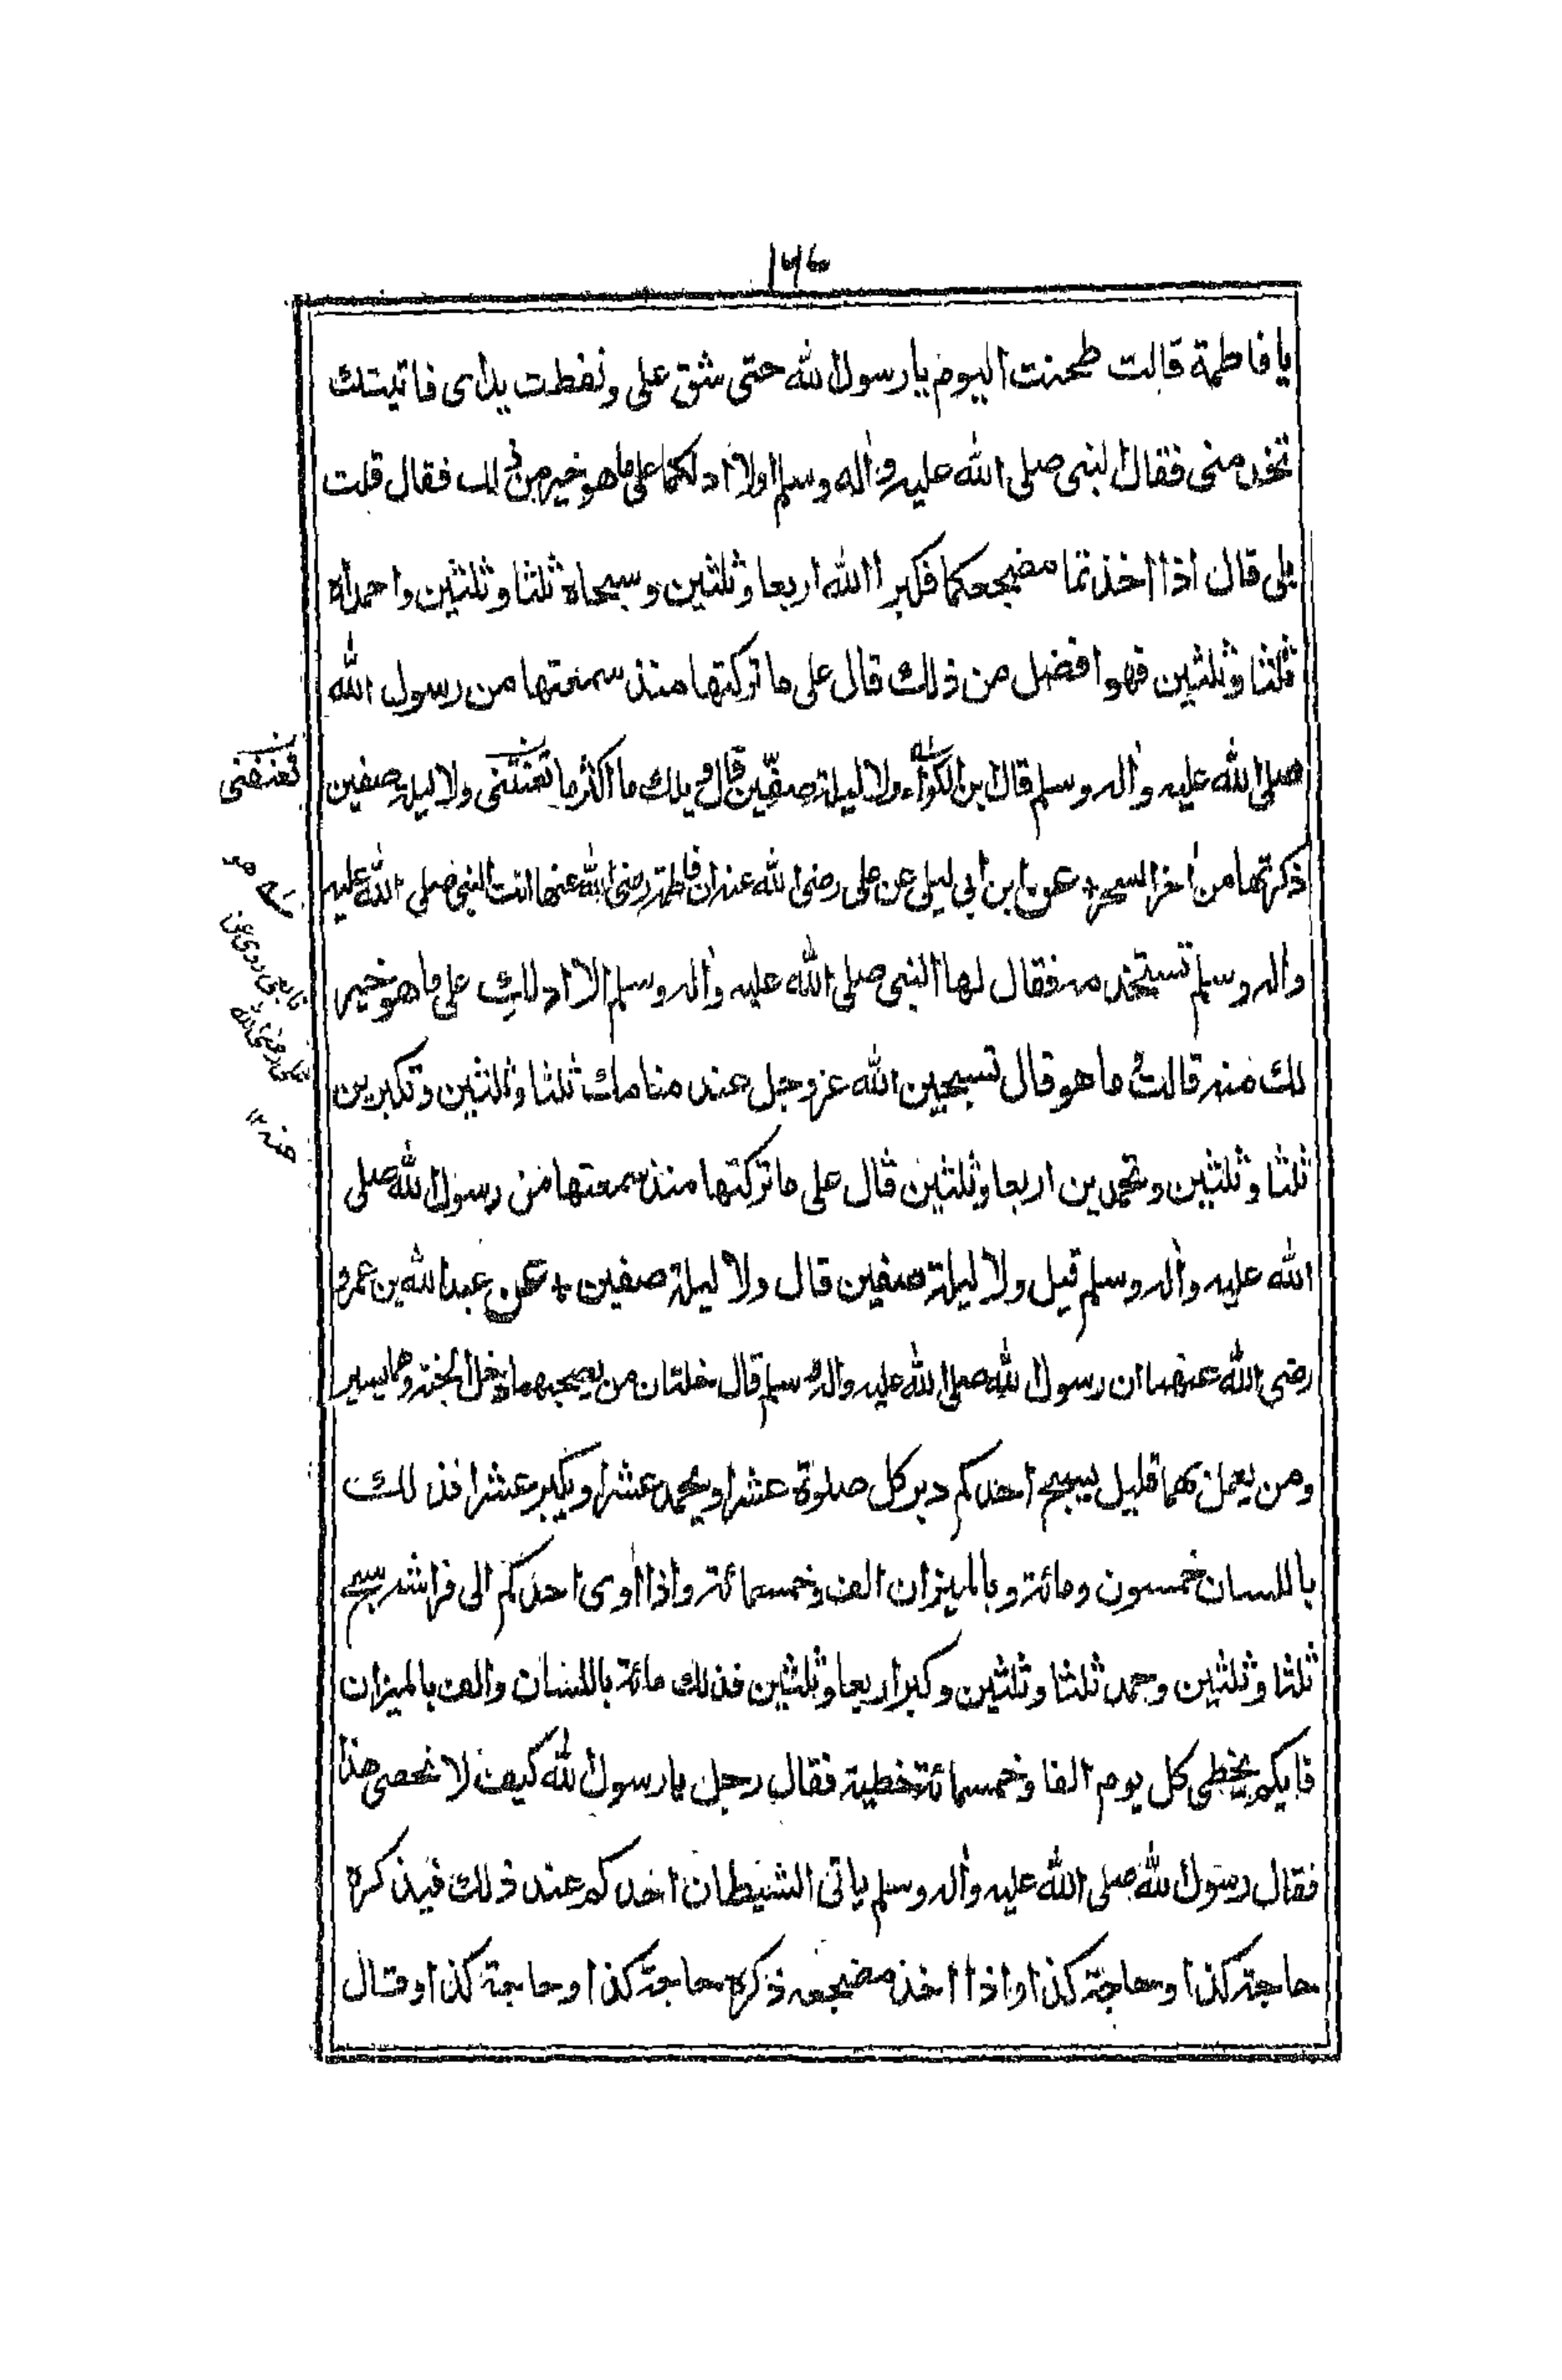 يا فاطمة قالت طحنت اليوم يا رسول الله حتى شق على ونفطت يداى فاتيتك
تخدمنى فقال النبى صلى الله عليه واٰله وسلم اولا ادلكما على ما هو خير من ذلك فقال قلت
بلى قال اذا اخذتما مضجعكما فكبرا الله اربعا وثلثين وسبحاه ثلثا وثلثين واحمداه
ثلثا وثلثين فهو افضل من ذلك قال على ما تركتها منذ سمعتها من رسول الله
صلى الله عليه واٰله وسلم قال بن الكواء ولا ليلة صفّين قال ويلك ما اكثر ما تعنتنى ولا ليلة صفين
تعنفنى
ذكرتها من اٰخر السحر + عن ابن ابى ليلى عن على رضى الله عنه ان فاطمة رضى الله عنها اتت النبى صلى الله عليه
واٰله وسلم تستخدمه فقال لها النبى صلى الله عليه واٰله وسلم الا ادلكِ على ما هو خير
تابعى روى عن
على رضى الله
لك منه قالت ما هو قال تسبحين الله عز وجل عند منامك ثلثا وثلثين وتكبرين
عنه ١٢
ثلثا وثلثين وتحمدين اربعا وثلثين قال على ما تركتها منذ سمعتها من رسول الله صلى
الله عليه واٰله وسلم قيل ولا ليلة صفين قال ولا ليلة صفين + عن عبد الله بن عمرو
رضى الله عنهما ان رسول الله صلى الله عليه واله وسلم قال خلتان من يصحبهما دخل الجنة وهما يسير
ومن يعمل بهما قليل يسبح احدكم دبر كل صلوة عشرا ويحمد عشرا ويكبر عشرا فذلك
باللسان خمسون ومائة وبالميزان الف وخمسمائة واذا اوى احدكم الى فراشه سبح
ثلثا وثلثين وحمد ثلثا وثلثين وكبر اربعا وثلثين فذلك مائة باللسان والف بالميزان
فايكم يخطى كل يوم الفا وخمسمائة خطية فقال رجل يا رسول الله كيف لا نحصى هذا
فقال رسول الله صلى الله عليه واٰله وسلم ياتى الشيطان احدكم عند ذلك فيذكره
حاجة كذا وحاجة كذا واذا اخذ مضجعه ذكره حاجة كذا وحاجة كذا وقال